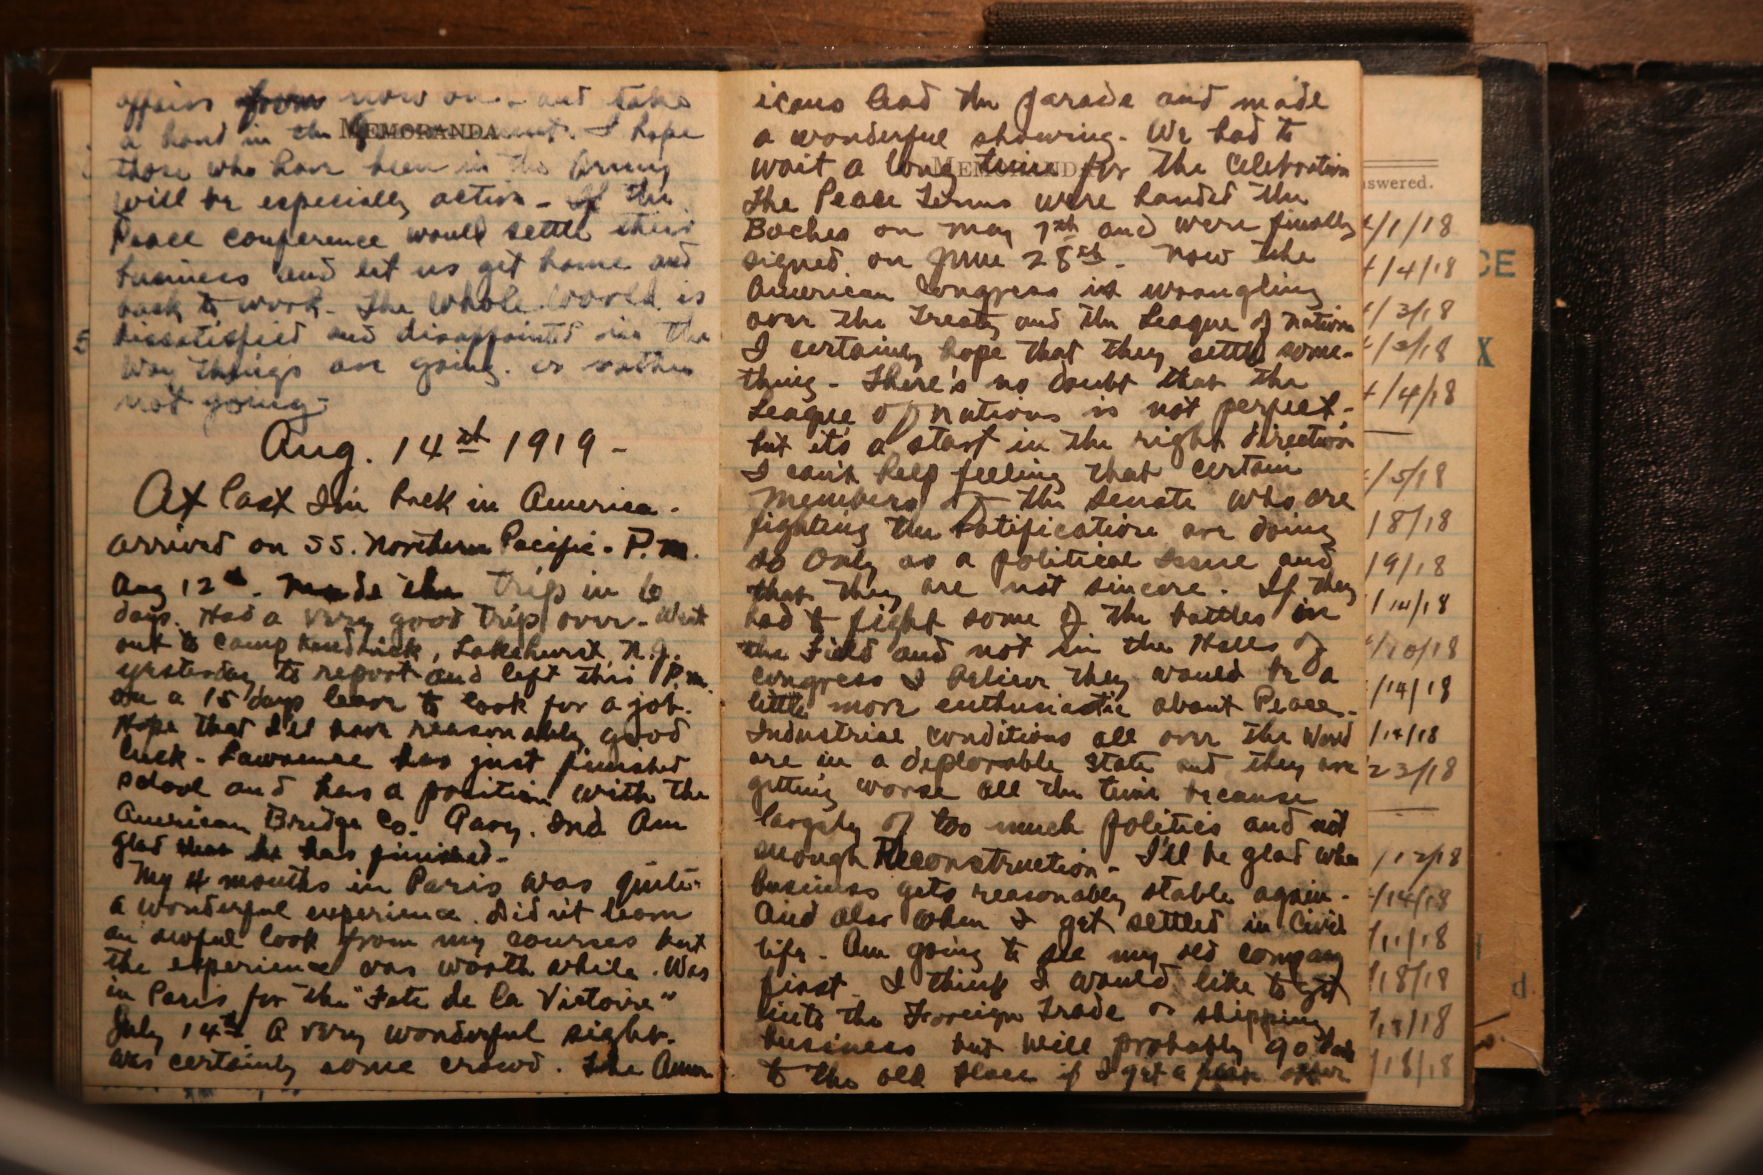 affairs from now on - and take
a hand in the MEMORANDA. I hope
those who have been in the Army
will be especially active - If the
Peace conference would settle their
business and let us get home and
back to work. The whole world is
dissatisfied and disappointed in the
way things are going. or rather
not going -
Aug. 14th 1919 -
At last I'm back in America -
arrived on SS. Northern Pacific - P.m.
Aug 12th. Made the trip in 6
days. Had a very good trip over - Went
out to Camp Kendrick, Lakehurst, N.J.
yesterday to report and left this P.m.
on a 15 days leave to look for a job.
Hope that I'll have reasonably good
luck - Lawrence has just finished
school and has a position with the
American Bridge Co. Gary. Ind Am
glad that he has finished -
My 4 months in Paris was quite
a wonderful experience. Didn't learn
an awful look from my courses but
the experience was worth while. Was
in Paris for the "Fete de la Victoire"
July 14th. A very wonderful sight.
Was certainly some crowd. The Amer
icans lead the parade and made
a wonderful showing. We had to
wait a long time for the celebration
MEMORANDA
The Peace Terms were handed the
Boches on May 7th and were finally
signed on June 28th - Now the
American Congress is wrangling
over the Treaty and the League of Nations
I certainly hope that they settle some-
thing - There's no doubt that the
League of Nations is not perfect -
but it's a start in the right direction
I can't help feeling that certain
members of the Senate who are
fighting the ratification are doing
so only as a political issue and
that they are not sincere. If they
had to fight some of the battles in
the Field and not in the Halls of
Congress I believe they would be a
little more enthusiastic about Peace -
Industrial conditions all over the World
are in a deplorable state and they are
getting worse all the time because
largely of too much politics and not
enough Reconstruction - I'll be glad when
business gets reasonably stable again -
And also when I get settled in Civil
life - Am going to see my old company
first - I think I would like to get
into the Foreign Trade or shipping
business but will probably go back
to the old place if I get a offer
nswered.
/1/18
/4/18
/3/18
/3/18
/4/18
/5/18
/8/18
/9/18
/14/18
/10/18
/14/18
/14/18
23/18
/12/18
/14/18
/11/18
/18/18
/18
/18/18
CE
X
d